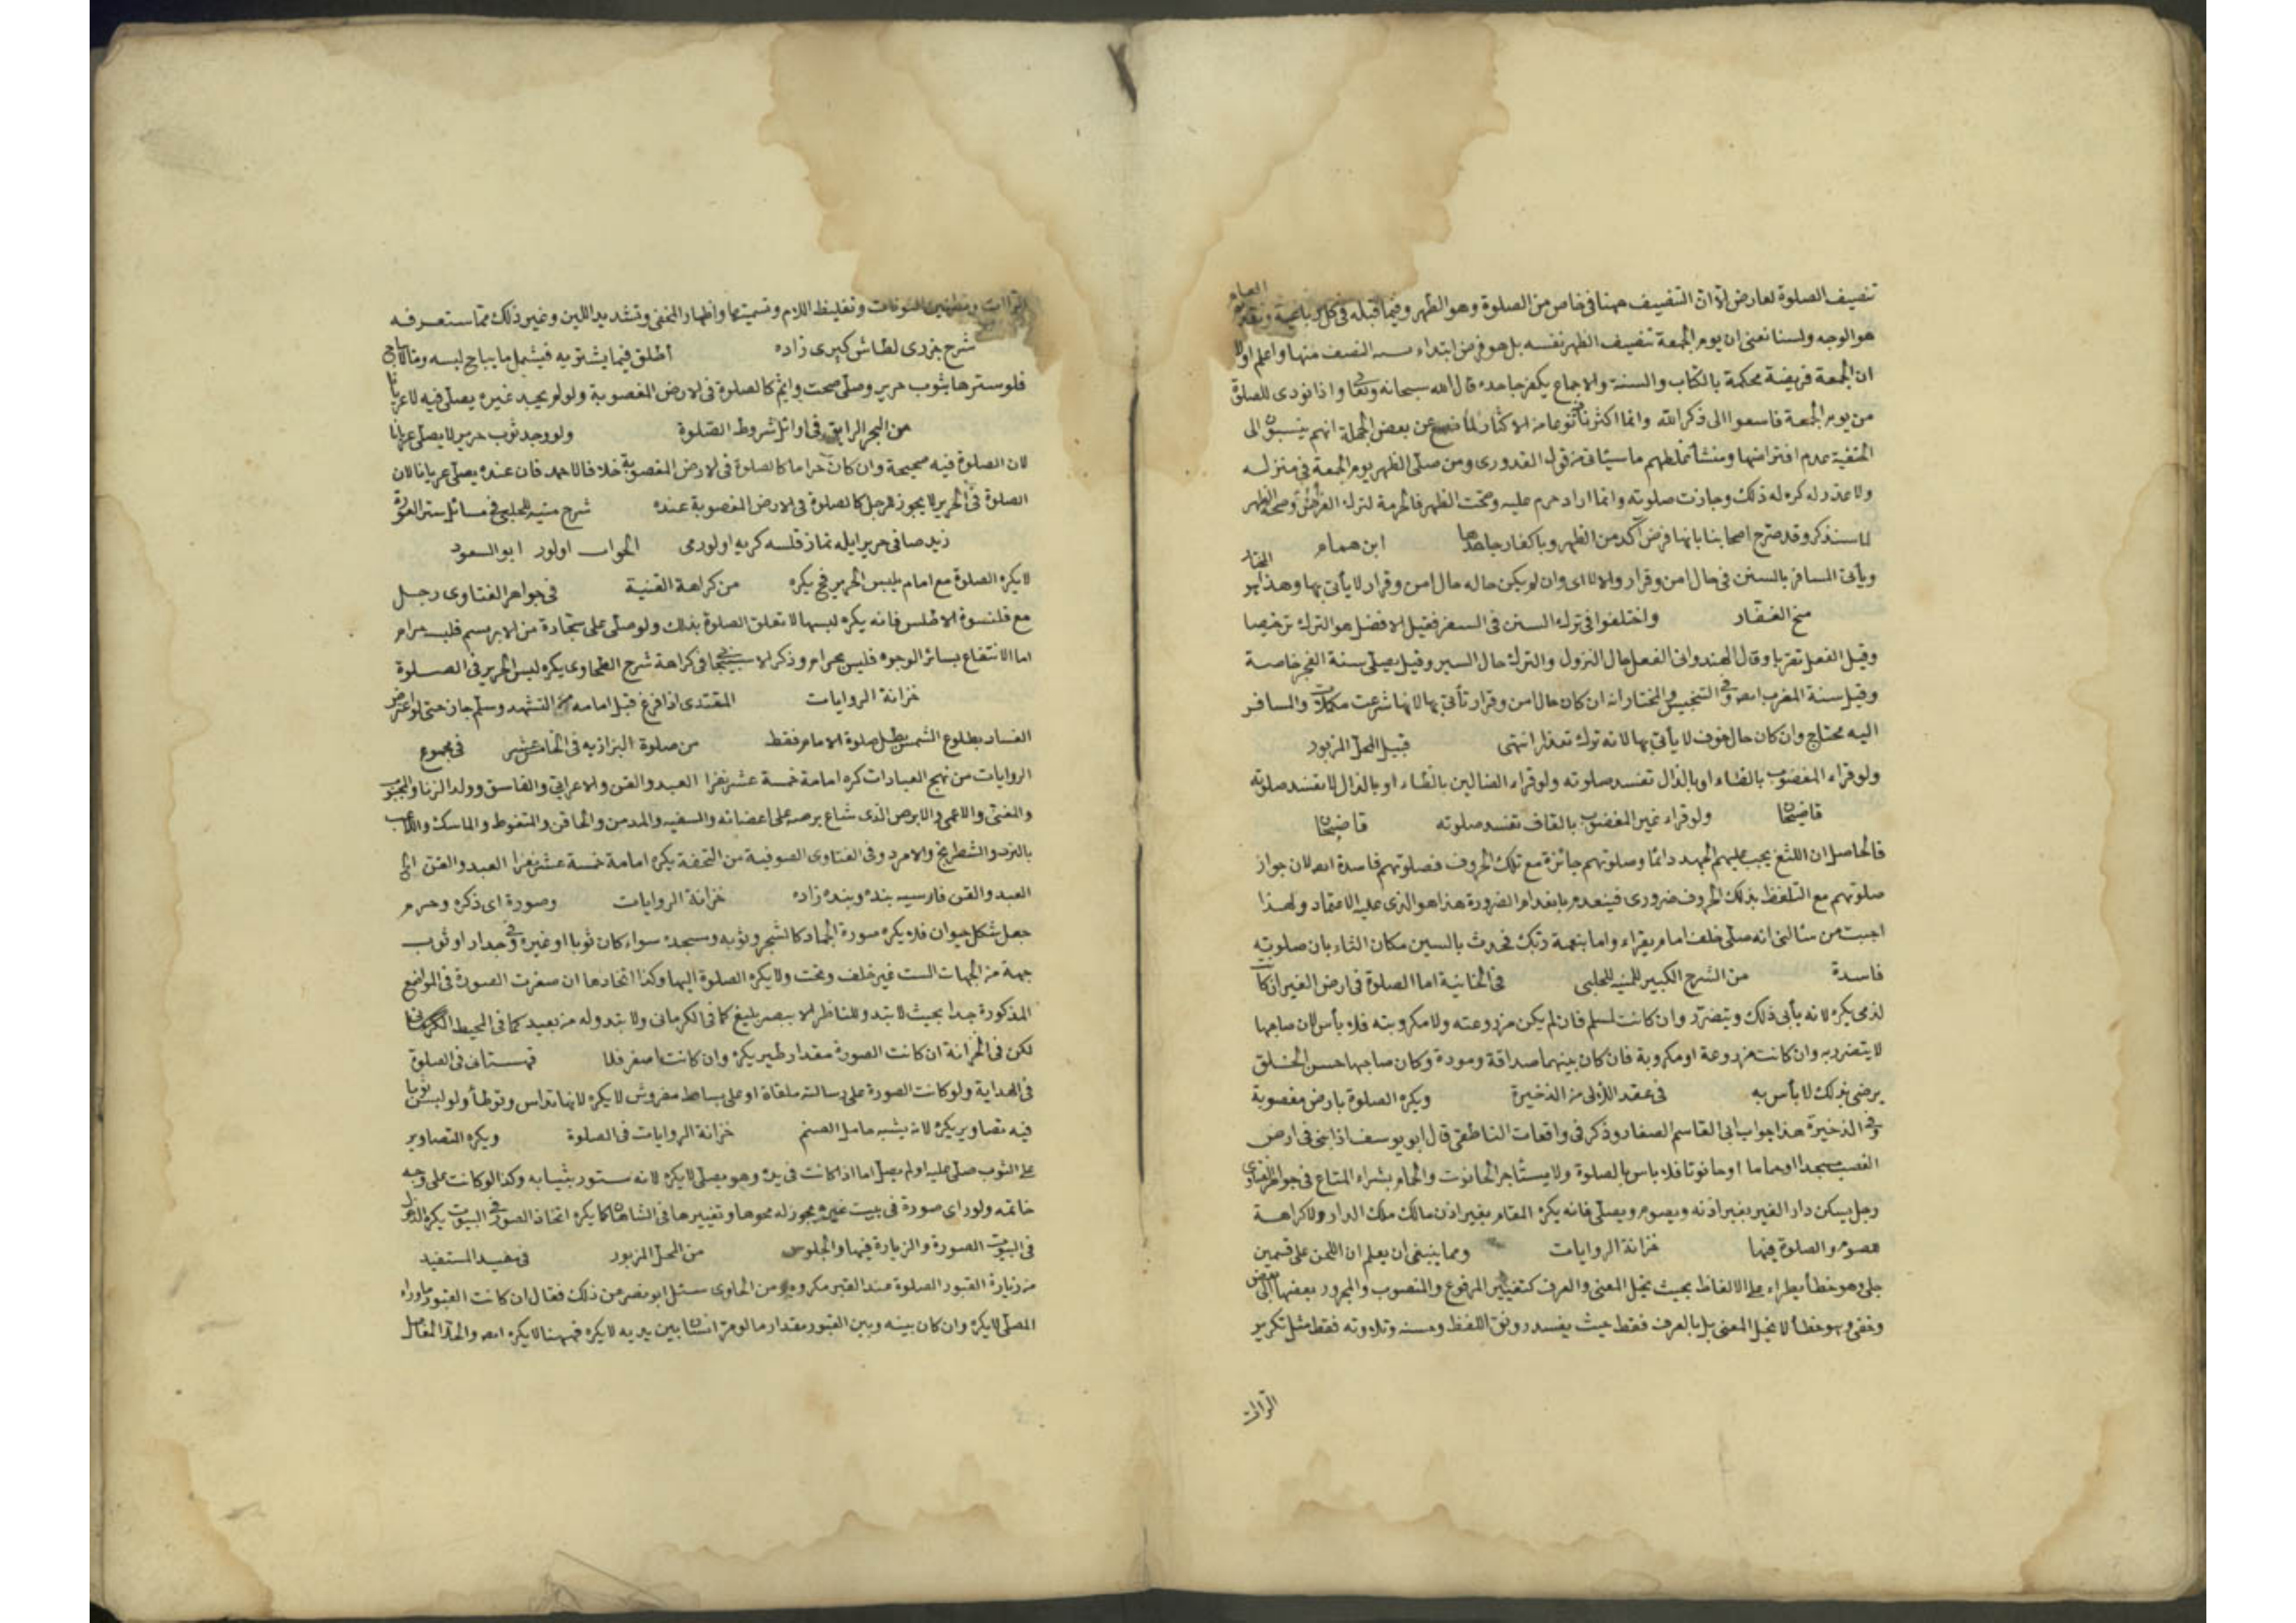 تنصيف الصلوة لعارض الا ان التنصيف ههنا فى خاص من الصلوة وهو الظهر وفيما قبله فى كل رباعية وتقديم العام
هو الوجه ولسنا نعنى ان يوم الجمعة تنصيف الظهر نفسه بل هو فرض ابتداء نسبته النصف منها واعلم اولا
ان الجمعة فريضة محكمة بالكتاب والسنة والاجماع يكفر جاحده قال الله سبحانه وتعا واذا نودى للصلوة
من يوم الجمعة فاسعوا الى ذكر الله وانما اكثرنا فيه نوعا من الاكثار لما نسمع عن بعض الجهلة انهم ينسبون الى
الحنفية عدم افتراضها ومنشأ غلطهم ما سيأتى من قول القدورى ومن صلى الظهر يوم الجمعة فى منزله
ولا عذر له كره له ذلك وجازت صلوته وانما اراد حرم عليه وصحت الظهر فالحرمة لترك الفرض وصحة الظهر
لما سنذكر وقد صرح اصحابنا بانها فرض آكد من الظهر وباكفار جاحدها ابن همام
ويأتى المسافر بالسنن فى حال امن وقرار والا لا اى وان لم يكن حاله حال امن وقرار لا يأتى بها وهذا هو المختار
منح الغفار واختلفوا فى ترك السنن فى السفر فقيل الافضل هو الترك ترخيصا
وقيل الفعل تقربا وقال الهندوانى الفعل حال النزول والترك حال السير وقيل يصلى سنة الفجر خاصة
وقيل سنة المغرب ايضا وفى التجنيس والمختار انه ان كان حال امن وقرار تأتى بها لانها شرعت مكملات والمسافر
اليه محتاج وان كان حال خوف لا يأتى بها لانه ترك بعذر انتهى قبيل المحل المزبور
ولو قراء المغضوب بالظاء او بالذال تفسد صلوته ولو قراء الضالين بالظاء او بالذال لا تفسد صلوته
قاضيخان ولو قراء غير المغضوب بالقاف تفسد صلوته قاضيخان
فالحاصل ان اللثغ يجب عليهم الجهد دائما وصلوتهم جائزة مع تلك الحروف فصلوتهم فاسدة ايضا لان جواز
صلوتهم مع التلفظ بذلك الحروف ضرورى فينعدم بانعدام الضرورة هذا هو الذى عليه الاعتماد ولهذا
اجبت من سألنى انه صلى خلف امام يقراء واما بنعمة ربك فحدث بالسين مكان الثاء بان صلوته
فاسدة من الشرح الكبير للمنيه للحلبى فى الخانية اما الصلوة فى ارض الغير ان كانت
لذمى يكره لانه يأبى ذلك ويتضرر وان كانت لمسلم فان لم يكن مزروعته ولا مكروبته فلا بأس لان صاحبها
لا يتضرر به وان كانت مزروعة او مكروبة فان كان بينهما صداقة ومودة وكان صاحبها حسن الخلق
يرضى بذلك لا بأس به فى عقد اللآلى من الذخيرة ويكره الصلوة بارض مغصوبة
وفى الذخيرة هذا جواب ابى القاسم الصفار وذكر فى واقعات الناطفى قال ابو يوسف اذا بنى فى ارض
الغصب مسجدا او حماما او حانوتا فلا باس بالصلوة ولا يستأجر الحانوت والحمام بشراء المتاع فى جواهر الفتاوى
رجل يسكن دار الغير بغير اذنه ويصوم ويصلى فانه يكره المقام بغير اذن مالك ملك الدار ولا كراهة
لصومه والصلوة فيها خزانة الروايات ومما ينبغى ان يعلم ان اللحن على قسمين
جلى وهو خطأ يطراء على الالفاظ بحيث يخل المعنى والعرف كتغيير المرفوع والمنصوب والمجرور بعضها الى بعض
وخفى وهو خطأ لا يخل المعنى بل بالعرف فقط حيث يفسد رونق اللفظ وحسنه وتلاوته فقط مثل تكرير
الراات
الراات وتطنين النونات وتغليظ اللام وتسميتها واظهار المخفى وتشديد اللين وغير ذلك مما ستعرفه
شرح جزرى لطاش كبرى زاده اطلق فيما يشتريه فيشمل ما يباح لبسه وما لا يباح
فلو سترها بثوب حرير وصلى صحت واثم كالصلوة فى الارض المغصوبة ولو لم يجد غيره يصلى فيه لا عريانا
من البحر الرايق فى اوائل شروط الصلوة ولو وجد ثوب حرير لا يصلى عريانا
لان الصلوة فيه صحيحة وان كان حراما كالصلوة فى الارض المغصوبة خلافا لاحمد فان عنده يصلى عريانا لان
الصلوة فى الحرير لا يجوز للرجل كالصلوة فى الارض المغصوبة عنده شرح منيه للحلبى فى مسائل ستر العورة
زيد صافى حرير ايله نماز قلسه كريه اولورمى الجواب اولور ابو السعود
لا يكره الصلوة مع امام يلبس الحرير فح يكره من كراهة القنية فى جواهر الفتاوى رجل
مع قلنسوة الاطلس فانه يكره لبسها لا تعلق الصلوة بذلك ولو صلى على سجادة من الابريسم فلبسه حرام
اما الانتفاع بسائر الوجوه فليس بحرام وذكر الاسبيجابى فى كراهة شرح الطحاوى يكره لبس الحرير فى الصلوة
خزانة الروايات المقتدى اذا فرغ قبل امامه من التشهد وسلم جاز حتى لو عرض
الفساد بطلوع الشمس بطل صلوة الامام فقط من صلوة البزازيه فى الخامس عشر فى مجموع
الروايات من نهج العبادات كره امامة خمسة عشر نفرا العبد والقن والاعرابى والفاسق وولد الزنا والمجنون
والمغنى والاعمى والابرص الذى شاع برصه على اعضائه والسفيه والمدمن والحاقن والمتغوط والماسك واللاعب
بالنرد والشطرنج والامرد وفى الفتاوى الصوفية من التحفة يكره امامة خمسة عشر نفرا العبد والقن الخ
العبد والقن فارسيه بنده وبنده زاده خزانة الروايات وصورة اى ذكره وحرم
جعل شكل حيوان فلا يكره صورة الجماد كالشجر وثوبه ومسجده سواء كان ثوبا او غيره وفى جدار او ثوب
جهة من الجهات الست غير خلف وتحت ولا يكره الصلوة اليها وكذا اتخاذها ان صغرت الصورة فى المواضع
المذكورة جدا بحيث لا تبدو للناظر الا ببصر بليغ كما فى الكرمانى ولا تبدو له من بعيد كما فى المحيط
لكن فى الخزانة ان كانت الصورة مقدار طير يكره وان كانت اصغر فلا قهستانى فى الصلوة
فى الهداية ولو كانت الصورة على وسادة ملقاة او على بساط مفروش لا يكره لانها تداس وتوطأ ولو لبس ثوبا
فيه تصاوير يكره لانه يشبه حامل الصنم خزانة الروايات فى الصلوة ويكره التصاوير
على الثوب صلى عليه او لم يصل اما اذا كانت فى يده وهو يصلى لا يكره لانه مستور بثيابه وكذا لو كانت على وجه
خاتمه ولو راى صورة فى بيت غيره يجوز له محوها وتغييرها فى الشاهان كما يكره اتخاذ الصور فى البيوت يكره الدخول
فى البيوت الصورة والزيارة فيها والجلوس من المحل المزبور فى مفيد المستفيد
من زيارة القبور الصلوة عند القبر مكروه من الحاوى سئل ابو نصر عن ذلك فقال ان كانت القبور ما وراء
المصلى لا يكره وان كان بينه وبين القبور مقدار ما لو مر انسان بين يديه لا يكره فههنا لا يكره ايضا والحد الفاصل